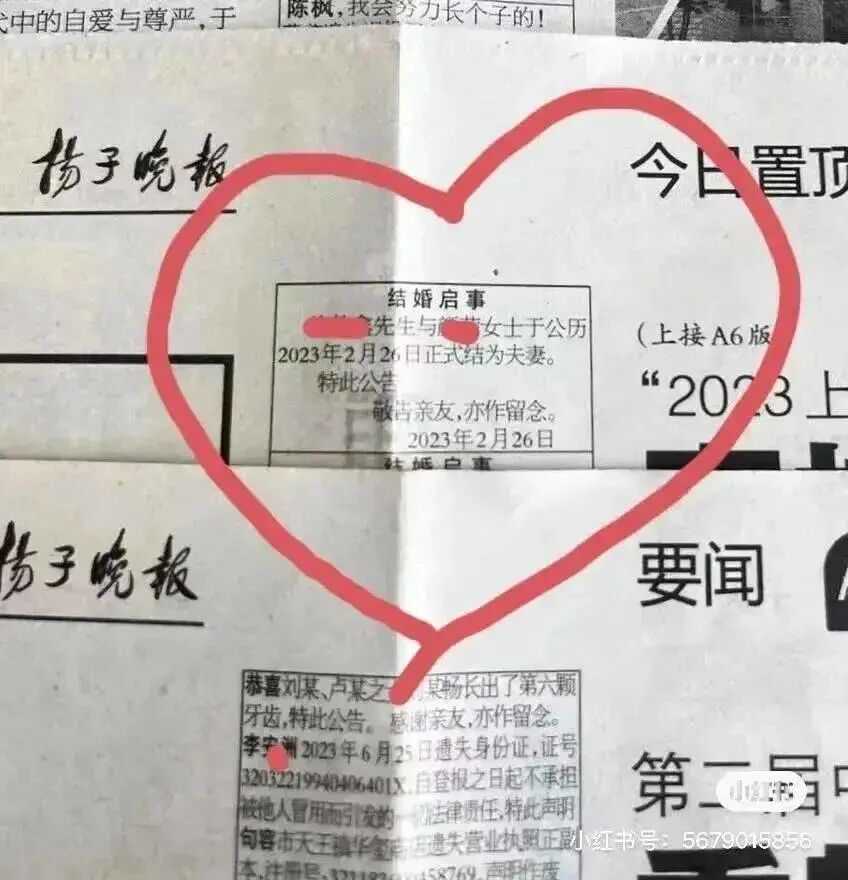 代中的自爱与尊严,于
陈枫,我会努力长个子的!
扬子晚报
今日置顶
结婚启事
先生与 女士于公历
2023年2月26日正式结为夫妻。
特此公告
敬告亲友,亦作留念。
2023年2月26日
结婚启事
(上接A6版
“2023上
扬子晚报
要闻
恭喜刘某、卢某之 刘某畅长出了第六颗
牙齿,特此公告。感谢亲友,亦作留念。
李 洲2023年6月25日遗失身份证,证号
32032219940406401X,自登报之日起不承担
被他人冒用而引发的一切法律责任,特此声明
句容市天王镇华 遗失营业执照正副
本,注册号:321183 458769,声明作废
第二届中
小红书
小红书号:5679015856